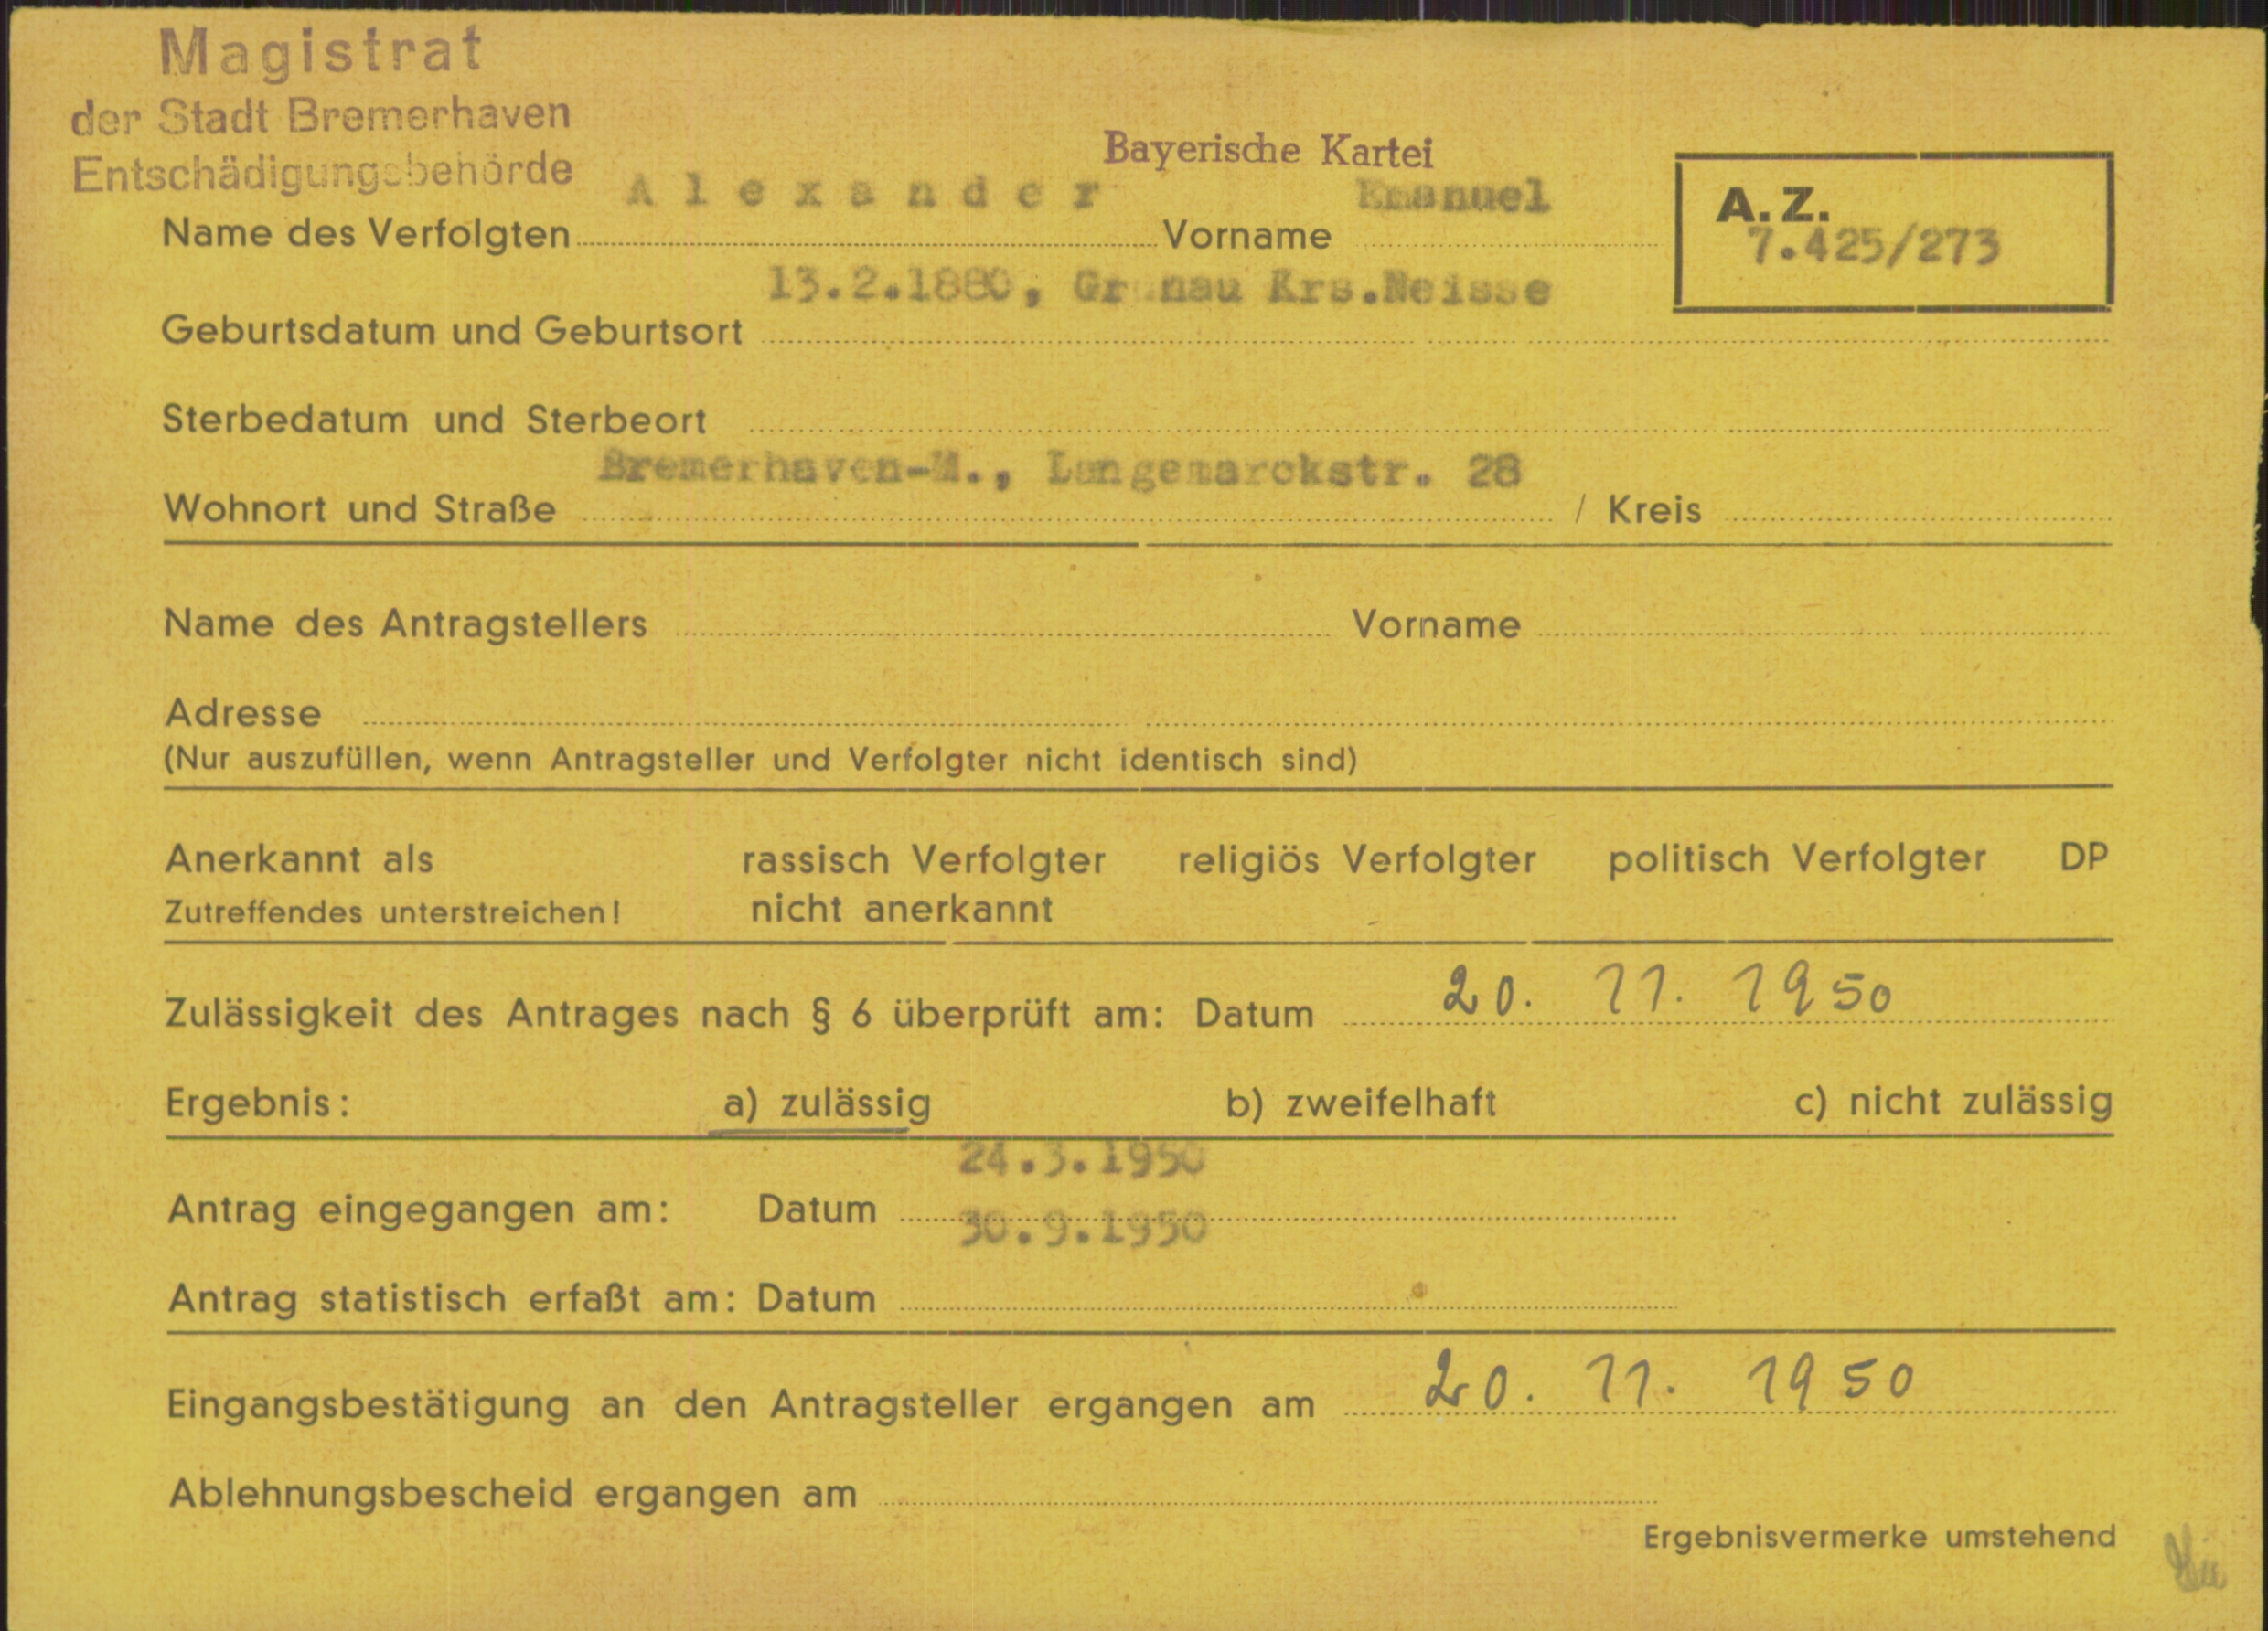 Magistrat
der Stadt Bremerhaven
Entschädigungsbehörde
Bayerische Kartei
A.Z.
7.425/273
Name des Verfolgten Alexander Vorname Emanuel
13.2.1880, Krs.Neisse
Geburtsdatum und Geburtsort
Sterbedatum und Sterbeort
Bremerhaven-M., Langemarckstr. 28
Wohnort und Straße / Kreis
Name des Antragstellers Vorname
Adresse
(Nur auszufüllen, wenn Antragsteller und Verfolgter nicht identisch sind)
Anerkannt als rassisch Verfolgter religiös Verfolgter politisch Verfolgter DP
Zutreffendes unterstreichen! nicht anerkannt
Zulässigkeit des Antrages nach § 6 überprüft am: Datum 20. 11. 1950
Ergebnis: a) zulässig b) zweifelhaft c) nicht zulässig
24.3.1950
Antrag eingegangen am: Datum
30.9.1950
Antrag statistisch erfaßt am: Datum
Eingangsbestätigung an den Antragsteller ergangen am 20. 11. 1950
Ablehnungsbescheid ergangen am
Ergebnisvermerke umstehend